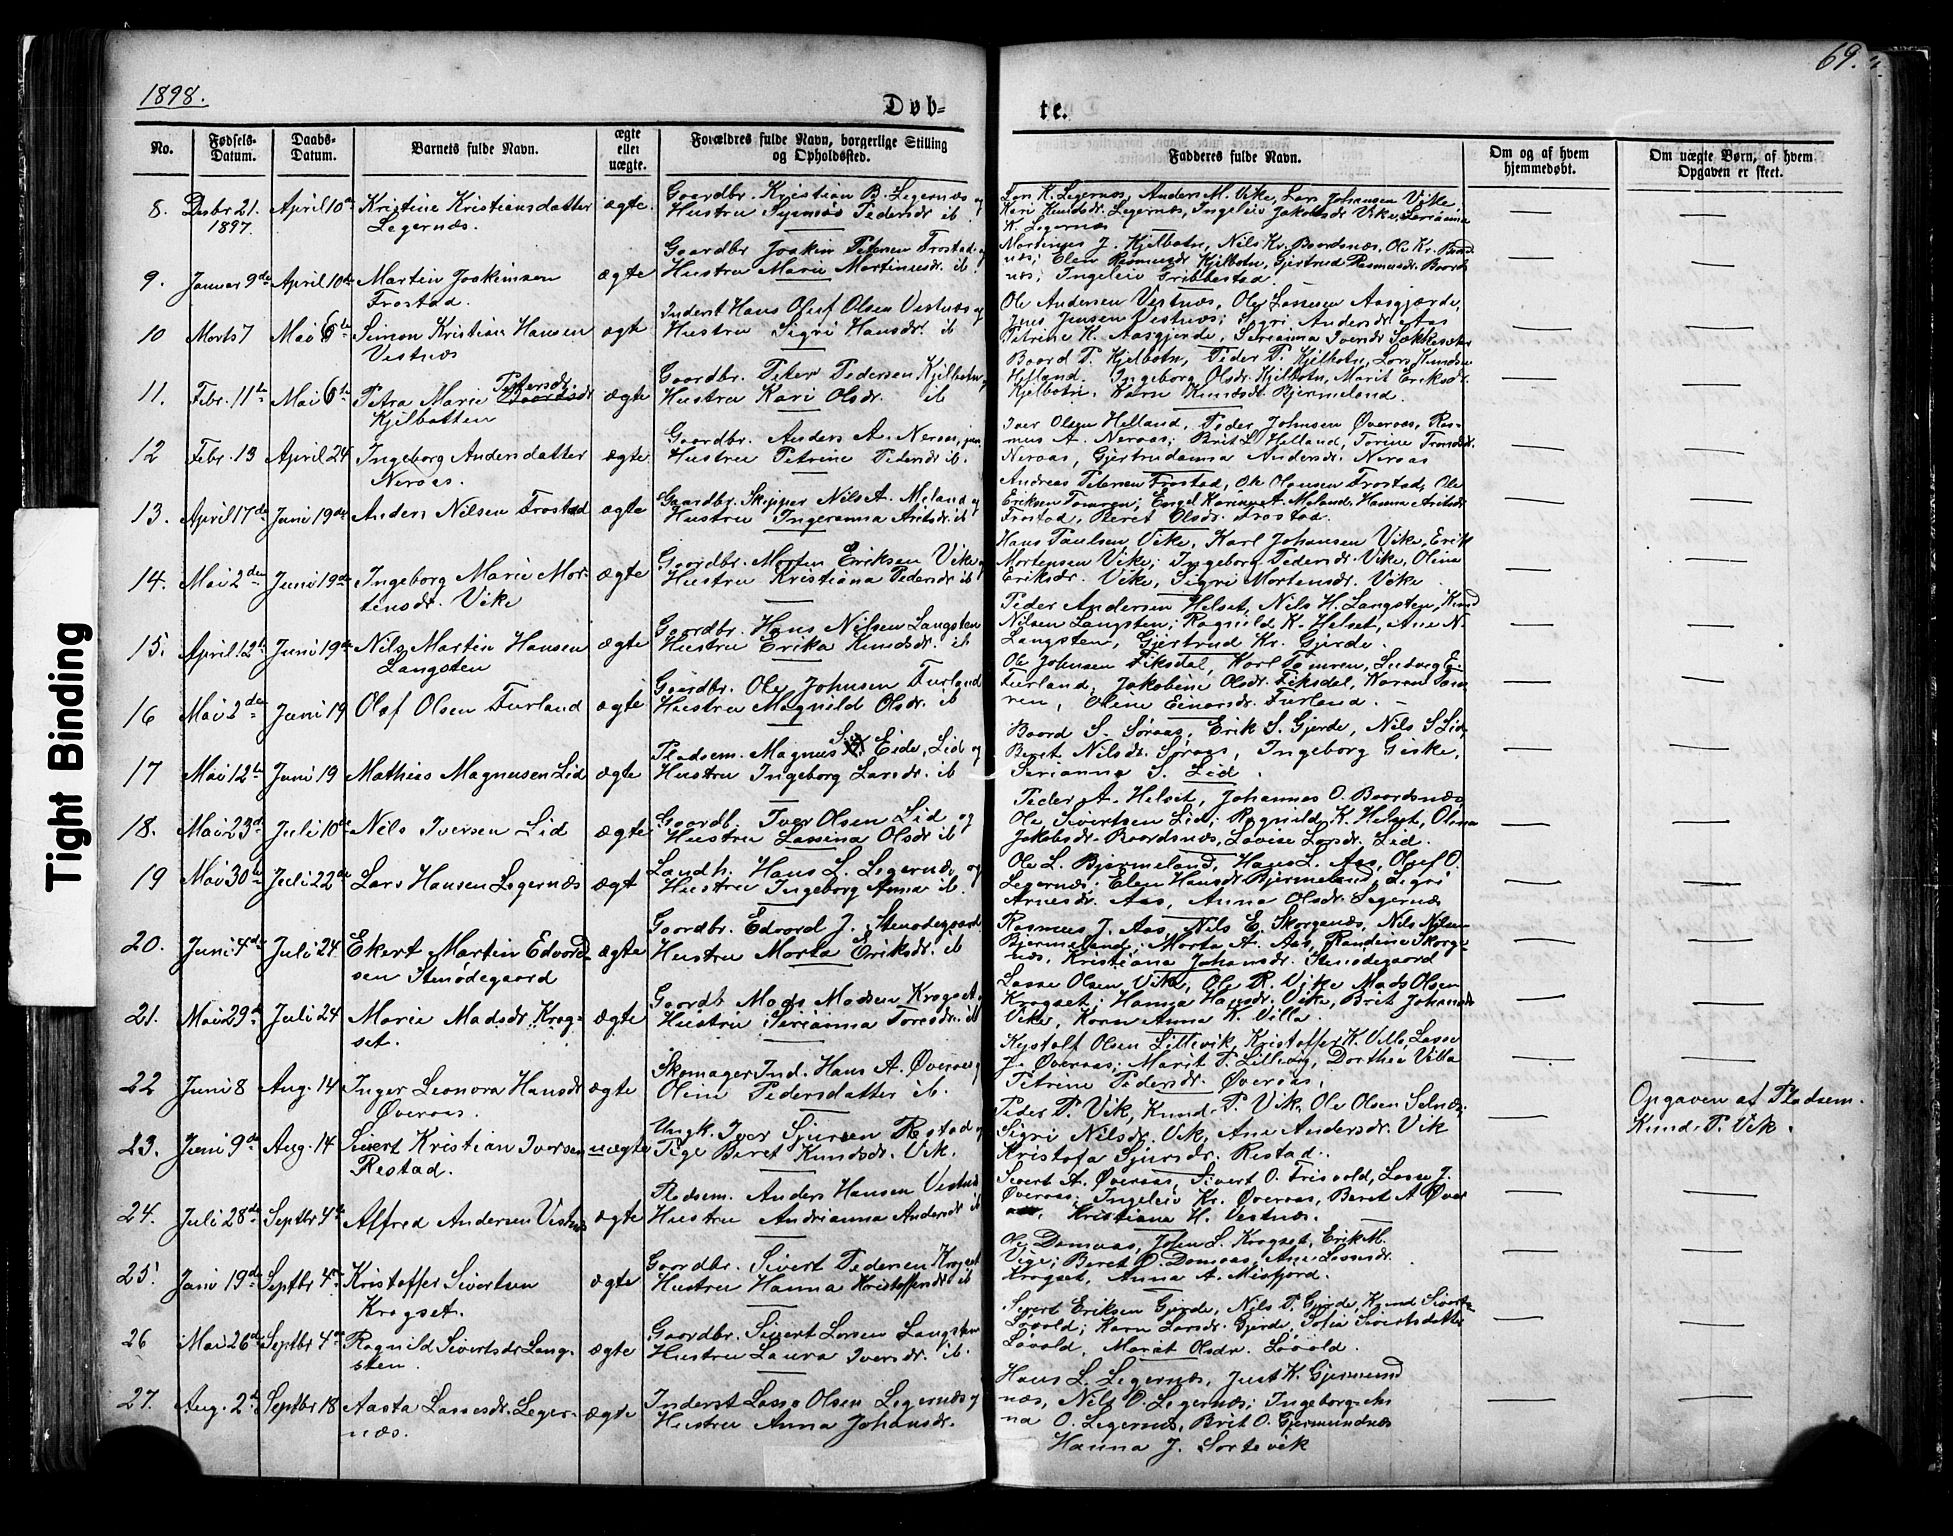 69.
1898.
Døb-
te.
No.
Fødsels-Datum.
Daabs-Datum.
Barnets fulde Navn.
ægte eller uægte.
Forældres fulde Navn, borgerlige Stilling og Opholdssted.
Fadderes fulde Navn.
Om og af hvem hjemmedøbt.
Om uægte Børn, af hvem Opgaven er skeet.
8. Desbr 21. 1897. April 10de Kristine Kristiansdatter Legernæs. ægte. Gaardbr. Kristian B. Legernæs og Hustru Synnøs Pedersdr ib.
Lars K. Legernæs, Anders M. Vike, Lars Johansen Vike,
Kari Knudsdr. Legernæs, Ingeleiv Jakobsdr Vike, Serianna
K. Legernæs
9. Januar 9de April 10de Martin Joakimsen Frostad. ægte Gaardbr Joakim Petersen Frostad og Hustru Marie Martinusdr. ib
Martinus J. Kjelbotn, Nils Kr. Baardsnæs, Ole Kr. Baards
næs; Elen Rasmusdr Kjelbotn, Gjertrud Rasmusdr. Baards
næs, Ingeleiv Gribbestad.
10 Marts 7 Mai 6te Simon Kristian Hansen Vestnæs ægte Inderst Hans Oluf Olsen Vestnæs og Hustru Sigri Hansdr. ib
Ole Andersen Vestnæs, Ole Lassesen Aasgjærde,
Jens Jensen Vestnæs; Sigri Andersdr Aas
Petrine K. Aasgjerde, Serianna Iversdr Sækkesæter
11. Febr. 11te Mai 6te Petra Marie Petersdr. Kjelbotten ægte Gaardbr. Peter Pedersen Kjelbotn og Hustru Kari Olsdr. ib
Baard P. Kjelbotn, Peder P. Kjelbotn, Lars Knudsen
Helland. Ingeborg Olsdr. Kjelbotn, Marit Eriksdr.
Kjelbotn, Karn Knudsdr. Bjermeland.
12 Febr. 13 April 24 Ingeborg Andersdatter Neraas. ægte Gaardbr. Anders A. Neraas, jun Hustru Petrine Pedersdr ib.
Iver Olsen Helland, Peder Johnsen Øveraas, Ras-
mus A. Neraas; Brit L. Helland, Torine Tronsdr.
Neraas, Gjertrudanna Andersdr. Neraas
13. April 17de Juni 19de Anders Nilsen Frostad ægte Gaardbr. Skipper Nils A. Meland og Hustru Ingeranna Arntsdr. ib
Andreas Petersen Frostad, Ole Olausen Frostad, Ole
Eriksen Tomren; Engel Karine A. Meland, Hanna Arntsdr
Frostad, Beret Olsdr. Frostad.
14. Mai 2den Juni 19de Ingeborg Marie Mor-tensdr. Vike ægte Gaardbr. Morten Eriksen Vike og Hustru Kristiana Pedersdr ib
Hans Paulsen Vike, Karl Johansen Vike, Erik
Mortensen Vike; Ingeborg Pedersdr. Vike, Oline
Eriksdr. Vike, Sigri Mortensdr. Vike.
15. April 12te Juni 19de Nils Martin Hansen Langsten ægte Gaardbr. Hans Nilsen Langsten Hustru Erika Knudsdr. ib
Peder Andersen Helset, Nils H. Langsten, Knud
Nilsen Langsten; Ragnild K. Helset, Ane N.
Langsten, Gjertrud Kr. Gjerde.
16 Mai 2den Juni 19 Olaf Olsen Furland ægte Gaardbr. Ole Johnsen Furland Hustru Magnild Olsdr. ib
Ole Johnsen Fiksdal, Karl Tomren, Ludvig E.
Furland, Jakobine Olsdr. Fiksdal, Karen Tom-
ren, Oline Einarsdr. Furland.
17 Mai 12te Juni 19 Mathias Magnusen Lid ægte Pladsem. Magnus S. Eide, Lid og Hustru Ingeborg Larsdr. ib
Baard S. Søraas, Erik S. Gjerde, Nils S. Lid
Beret Nilsdr. Søraas, Ingeborg Giske,
Serianna S. Lid.
18. Mai 23de Juli 10de Nils Iversen Lid ægte Gaardb. Iver Olsen Lid og Hustru Lassina Olsdr ib
Peder A. Helset, Johannes O. Baardsnæs,
Ole Sivertsen Lid; Ragnild K. Helset, Olina
Jakobsdr. Baardsnæs, Lovise Larsdr. Lid.
19 Mai 30te Juli 22de Lars Hansen Legernæs ægt Landh. Hans L. Legernæs og Hustru Ingeborg Anna ib.
Ole L. Bjermeland, Hans L. Aas, Oluf O.
Legernæs; Elen Hansdr Bjermeland, Sigri
Arnesdr. Aas, Anna Olsdr. Legernæs
20. Juni 4de Juli 24 Ekert Martin Edvard-sen Stenødegaard ægte Gaardbr. Edvard J. Stenødegaard Hustru Marta Eriksdr. ib
Rasmus J. Aas, Nils E. Skorgenæs, Nils Nilsen
Bjermeland; Marta A. Aas, Randine Skorge-
næs, Kristiana Johansdr. Stenødegaard
21. Mai 29de Juli 24 Marie Madsdr. Krog-set. ægte Gaardb. Mads Madsen Krogset og Hustru Serianna Toresdr. ib
Lasse Olsen Vike, Ole R. Vike Mads Olsen
Krogset; Hanna Hansdr. Vike, Brit Johansdr
Vike, Karn Anna K. Villa.
22 Juni 8 Aug. 14 Inger Leonora Hansdr Øveraas. ægte Skomager Ind. Hans A. Øveraas og Oline Pedersdatter ib.
Kristoffer K. Villa, Lasse
J. Øveraas; Marit P. Lillevig, Dorthea Villa
Petrine Pedersdr. Øveraas,
23. Juni 9de Aug. 14 Sivert Kristian Iversen Restad. uægte Ungk. Iver Sjursen Restad og Pige Beret Knudsdr. Vik.
Peder P. Vik, Knud P. Vik, Ole Olsen Selnæs;
Sigri Nilsdr. Vik, Ane Andersdr. Vik
Kristofa Sjursdr. Restad.
Opgaven af Pladsem.
Knud P. Vik.
24. Juli 28de Septbr 4de Alfred Andersen Vestnæs ægte Pladsem. Anders Hansen Vestnæs Hustru Andrianna Andersdr ib
Sivert A. Øveraas, Sivert O. Frisvold, Lasse J.
Øveraas; Ingeleiv Kr. Øveraas, Beret A. Øver
aas, Kristiana H. Vestnæs.
25. Juni 19de Septbr 4de Kristoffer Sivertsen Krogset. ægte Gaardbr. Sivert Pedersen Krogset Hustru Hanna Kristoffersdr ib
Ole Damaas, John L. Krogset, Erik M.
Vige; Beret O. Damaas, Ane Lassedr.
Krogset, Anna A. Misfjord.
26 Mai 26de Septbr 4de Ragnild Sivertsdr Lang-sten. ægte Gaardbr. Sivert Larsen Langsten Hustru Laura Iversdr. ib.
Sivert Eriksen Gjerde, Nils P. Gjerde, Knud Siverts.
Løvold; Karn Larsdr. Gjerde, Sofia Sivertsdatter
Løvold, Marit Olsdr. Løvold.
27. Aug. 2de Septbr 18 Aasta Lassesdr. Leger-næs. ægte Inderst Lasse Olsen Legernæs og Hustru Anna Johansdr.
Hans L. Legernæs, Just K. Gjermund
næs, Nils O. Legernæs; Ingeborg An
na O. Legernæs, Brit O. Gjermundnæs
Hanna J. Sortevik
Tight Binding